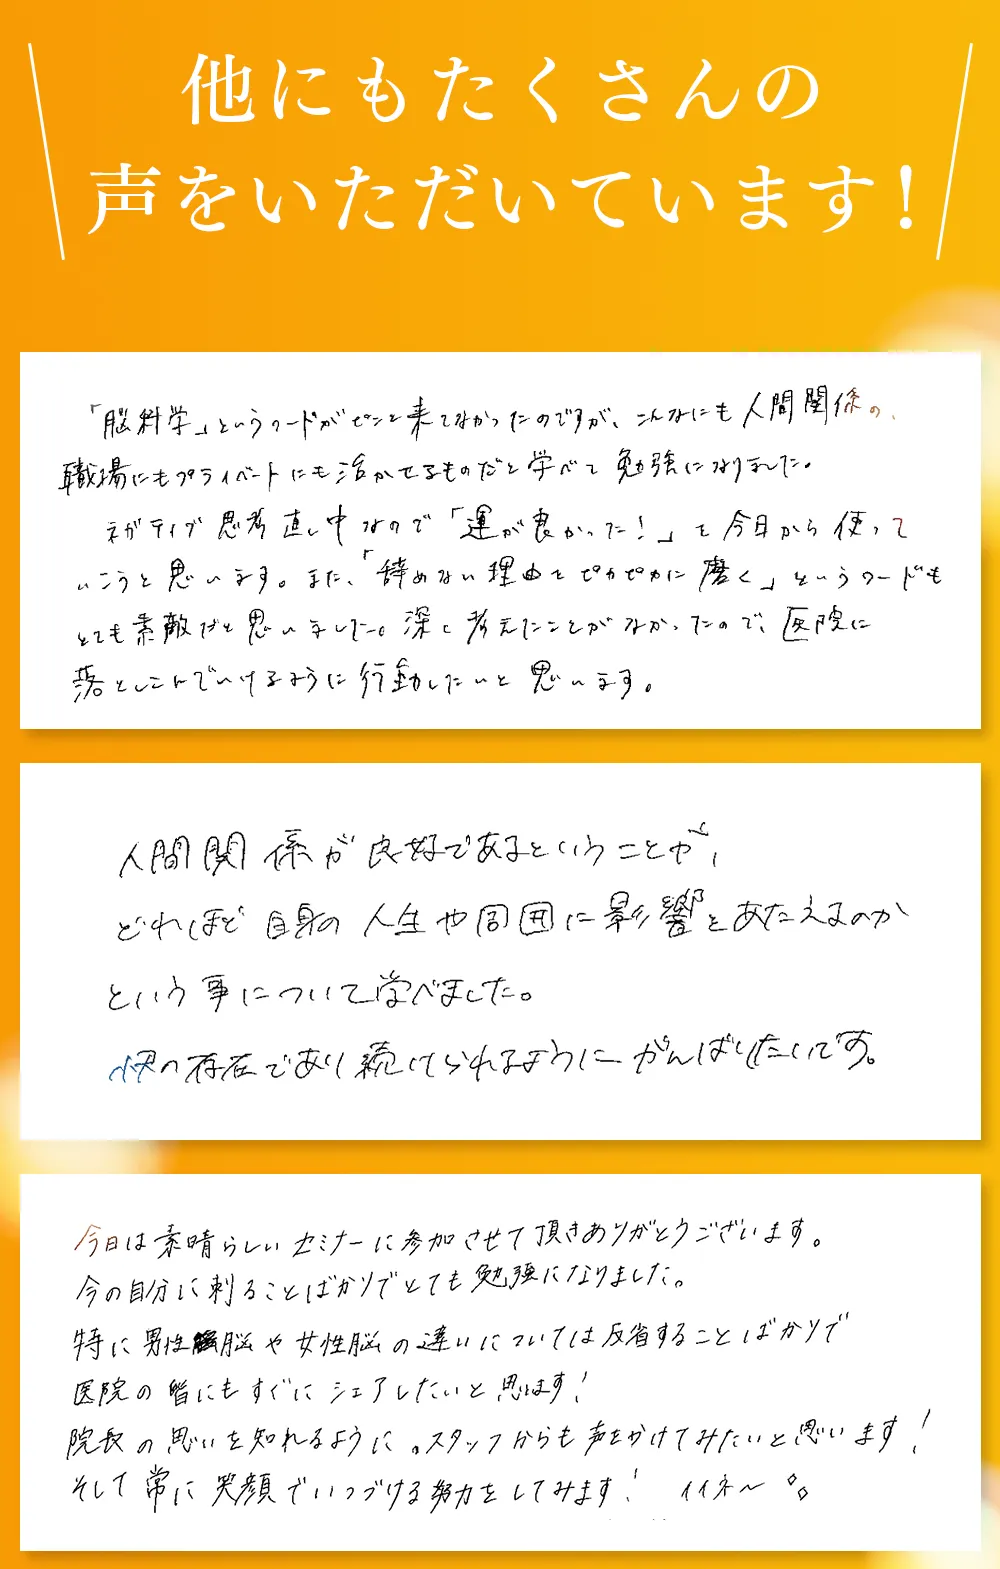 他にもたくさんの
声をいただいています!
「脳科学」というワードがピンと来てなかったのですが、こんなにも人間関係の、
職場にもプライベートにも活かせるものだと学べて勉強になりました。
ネガティブ思考直し中なので「運が良かった!」を今日から使って
いこうと思います。また、「辞めない理由をピカピカに磨く」というワードも
とても素敵だと思いました。深く考えたことがなかったので、医院に
落としこんでいけるように行動したいと思います。
人間関係が良好であるということが、
どれほど自身の人生や周囲に影響をあたえるのか
という事について学べました。
快の存在であり続けられるようにがんばりたいです。
今日は素晴らしいセミナーに参加させて頂きありがとうございます。
今の自分に刺ることばかりでとても勉強になりました。
特に男性脳や女性脳の違いについては反省することばかりで
医院の皆にもすぐにシェアしたいと思います!
院長の思いを知れるように。スタッフからも声をかけてみたいと思います!
そして常に笑顔でいつづける努力をしてみます! イイネ〜